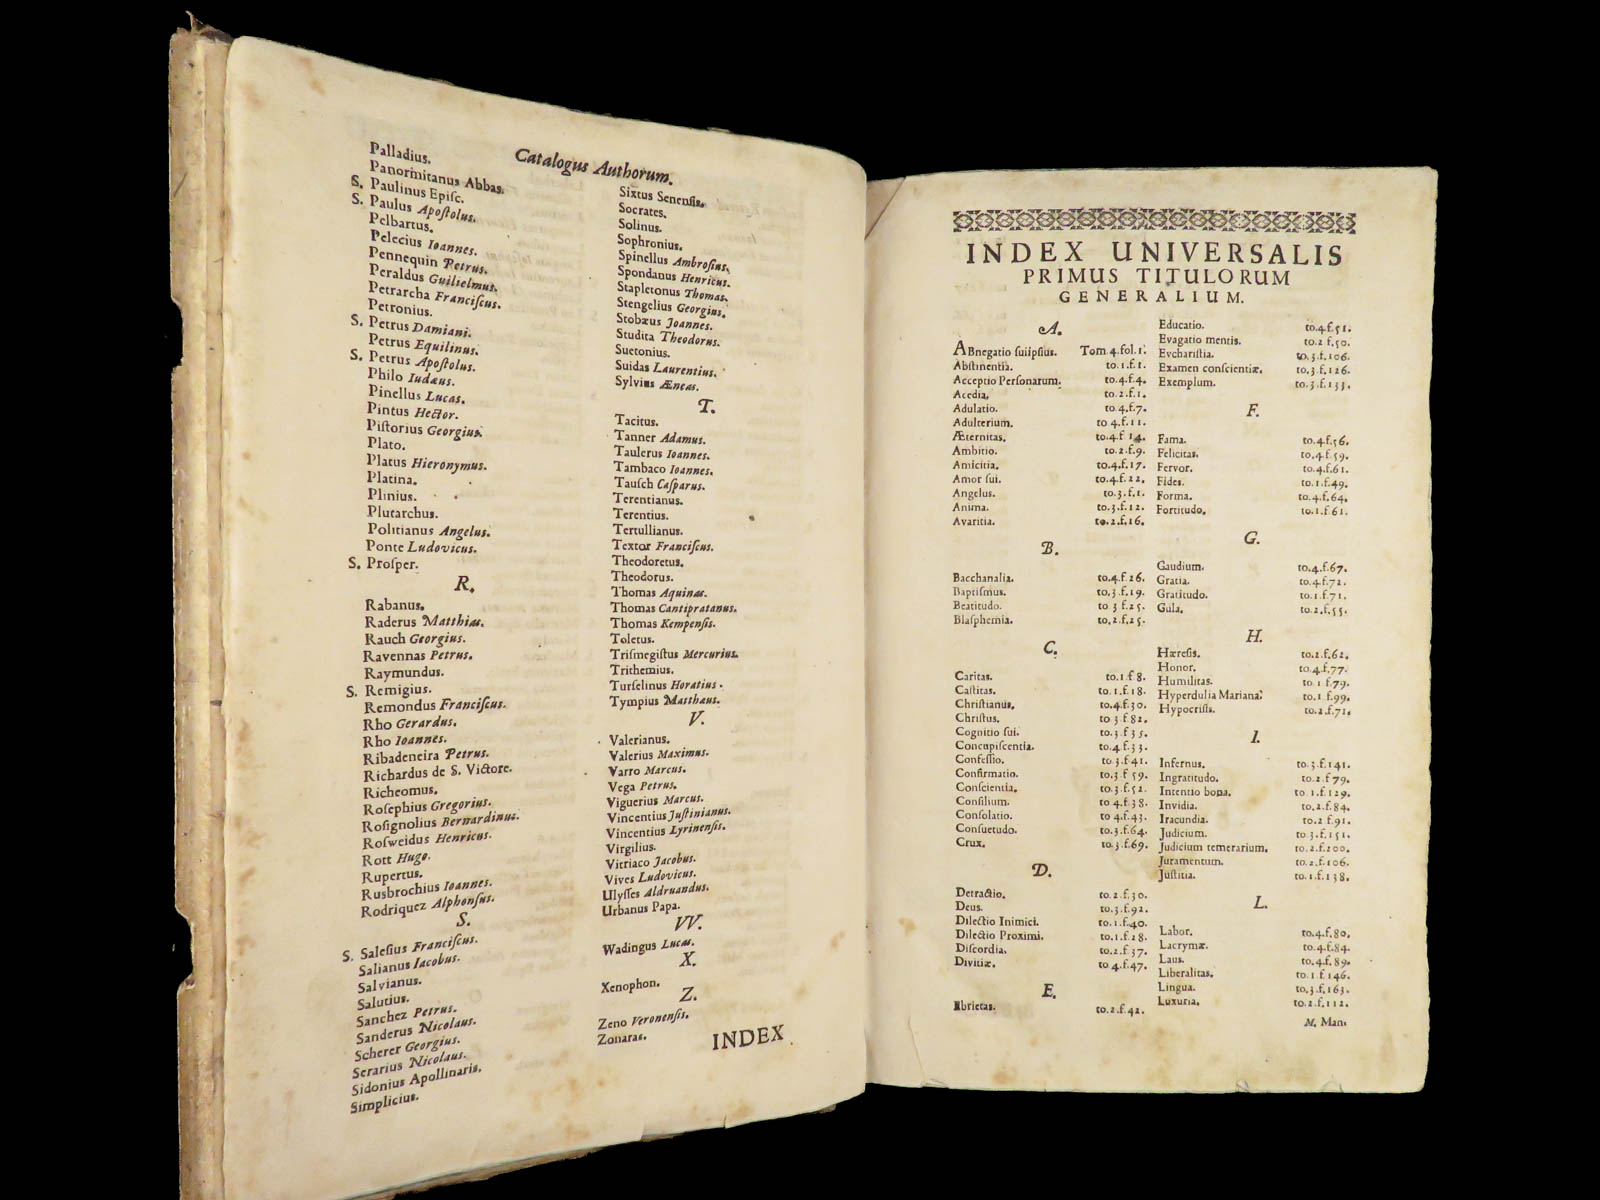 Catalogus Authorum.
Palladius.
Panormitanus Abbas.
S. Paulinus Episc.
S. Paulus Apoſtolus.
Pelbartus.
Pelecius Ioannes.
Pennequin Petrus.
Peraldus Guilielmus.
Petrarcha Franciſcus.
Petronius.
S. Petrus Damiani.
Petrus Equilinus.
S. Petrus Apoſtolus.
Philo Iudæus.
Pinellus Lucas.
Pintus Hector.
Piſtorius Georgius.
Plato.
Platus Hieronymus.
Platina.
Plinius.
Plutarchus.
Politianus Angelus.
Ponte Ludovicus.
S. Proſper.
R.
Rabanus.
Raderus Matthias.
Rauch Georgius.
Ravennas Petrus.
Raymundus.
S. Remigius.
Remondus Franciſcus.
Rho Gerardus.
Rho Ioannes.
Ribadeneira Petrus.
Richardus de S. Victore.
Richeomus.
Roſephius Gregorius.
Roſignolius Bernardinus.
Roſweidus Henricus.
Rott Hugo.
Rupertus.
Rusbrochius Ioannes.
Rodriquez Alphonſus.
S.
S. Saleſius Franciſcus.
Salianus Iacobus.
Salvianus.
Salutius.
Sanchez Petrus.
Sanderus Nicolaus.
Scherer Georgius.
Serarius Nicolaus.
Sidonius Apollinaris.
Simplicius.
Sixtus Senenſis.
Socrates.
Solinus.
Sophronius.
Spinellus Ambroſius.
Spondanus Henricus.
Stapletonus Thomas.
Stengelius Georgius.
Stobæus Joannes.
Studita Theodorus.
Suetonius.
Suidas Laurentius.
Sylvius Æneas.
T.
Tacitus.
Tanner Adamus.
Taulerus Ioannes.
Tambaco Ioannes.
Tauſch Caſparus.
Terentianus.
Terentius.
Tertullianus.
Textor Franciſcus.
Theodoretus.
Theodorus.
Thomas Aquinas.
Thomas Cantipratanus.
Thomas Kempenſis.
Toletus.
Triſmegiſtus Mercurius.
Trithemius.
Turſelinus Horatius.
Tympius Matthæus.
V.
Valerianus.
Valerius Maximus.
Varro Marcus.
Vega Petrus.
Viguerius Marcus.
Vincentius Juſtinianus.
Vincentius Lyrinenſis.
Virgilius.
Vitriaco Jacobus.
Vives Ludovicus.
Ulyſſes Aldruandus.
Urbanus Papa.
VV.
Wadingus Lucas.
X.
Xenophon.
Z.
Zeno Veronenſis.
Zonaras.
INDEX
INDEX UNIVERSALIS
PRIMUS TITULORUM
GENERALIUM.
A.
ABnegatio ſuiipſius. Tom 4. fol. 1.
Abſtinentia. to. 1. f. 1.
Acceptio Perſonarum. to. 4. f. 4.
Acedia. to. 2. f. 1.
Adulatio. to 4. f. 7.
Adulterium. to 4. f. 11.
Æternitas. to. 4. f 14.
Ambitio. to. 2. f. 9.
Amicitia. to. 4. f. 17.
Amor ſui. to. 4. f. 22.
Angelus. to. 3. f. 1.
Anima. to. 3. f. 12.
Avaritia. to. 2. f. 16.
B.
Bacchanalia. to. 4. f 26.
Baptiſmus. to. 3. f. 19.
Beatitudo. to 3 f. 25.
Blaſphemia. to. 2. f. 25.
C.
Caritas. to. 1. f 8.
Caſtitas. to. 1. f. 18.
Chriſtianus. to. 4. f. 30.
Chriſtus. to 3 f. 82.
Cognitio ſui. to. 3. f 35.
Concupiſcentia. to. 4. f 33.
Confeſſio. to. 3. f 41.
Confirmatio. to. 3. f 59.
Conſcientia. to. 3. f. 52.
Conſilium. to 4. f. 38.
Conſolatio. to 4. f. 43.
Conſuetudo. to. 3. f. 64.
Crux. to. 3. f. 69.
D.
Detractio. to. 2. f. 30.
Deus. to. 3. f. 92.
Dilectio Inimici. to. 1. f. 40.
Dilectio Proximi. to. 1. f. 28.
Diſcordia. to. 2. f. 37.
Divitiæ. to 4. f. 47.
E.
Ebrietas. to. 2. f. 42.
Educatio. to. 4. f. 51.
Evagatio mentis. to. 2 f. 50.
Evchariſtia. to. 3. f. 106.
Examen conſcientiæ. to. 3. f. 126.
Exemplum. to. 3. f. 133.
F.
Fama. to. 4. f. 56.
Felicitas. to. 4. f. 59.
Fervor. to. 4. f. 61.
Fides. to. 1. f. 49.
Forma. to. 4. f. 64.
Fortitudo. to. 1. f 61.
G.
Gaudium. to. 4. f. 67.
Gratia. to. 4. f. 72.
Gratitudo. to. 1. f. 71.
Gula. to. 2. f. 55.
H.
Hæreſis. to. 2. f. 62.
Honor. to. 4. f. 77.
Humilitas. to 1 f. 79.
Hyperdulia Mariana. to. 1. f. 99.
Hypocriſis. to. 2. f. 71.
I.
Infernus. to. 3. f. 141.
Ingratitudo. to. 2. f. 79.
Intentio bona. to. 1. f. 129.
Invidia. to. 2. f. 84.
Iracundia. to. 2 f. 91.
Judicium. to 3. f. 151.
Judicium temerarium. to. 2. f. 200.
Juramentum. to. 2. f. 106.
Juſtitia. to. 1. f. 138.
L.
Labor. to. 4. f. 80.
Lacrymæ. to. 4. f. 84.
Laus. to. 4. f. 89.
Liberalitas. to. 1. f. 146.
Lingua. to. 3. f. 163.
Luxuria. to. 2. f. 112.
M. Man.